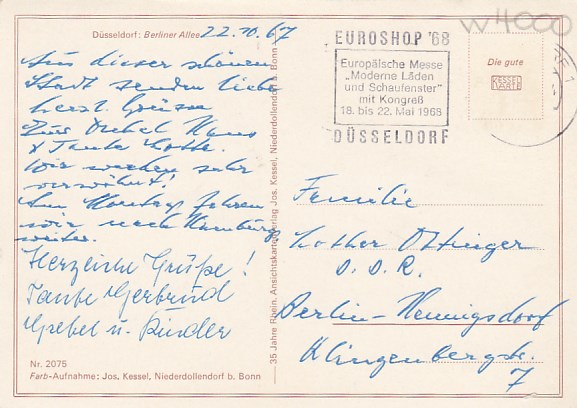 Düsseldorf: Berliner Allee
22.10.67
Aus dieser schönen
Stadt senden liebe
herzl. Grüsse
Eur Onkel Hans
+ Tante Lotte.
Wir werden sehr
verwöhnt!
Am Montag fahren
wir nach Hamburg
weiter.
Herzliche Grüße!
Tante Gertrud
Grebel u. Kinder
Nr. 2075
Farb-Aufnahme: Jos. Kessel, Niederdollendorf b. Bonn
35 Jahre Rhein. Ansichtskartenverlag Jos. Kessel, Niederdollendorf a. Rhein b. Bonn
W 4000
EUROSHOP '68
Europäische Messe
„Moderne Läden
und Schaufenster"
mit Kongreß
18. bis 22. Mai 1968
DÜSSELDORF
Die gute
KESSEL
KARTE
Familie
Lothar Ottinger
D.D.R.
Berlin-Hennigsdorf
Klingenbergstr.
7